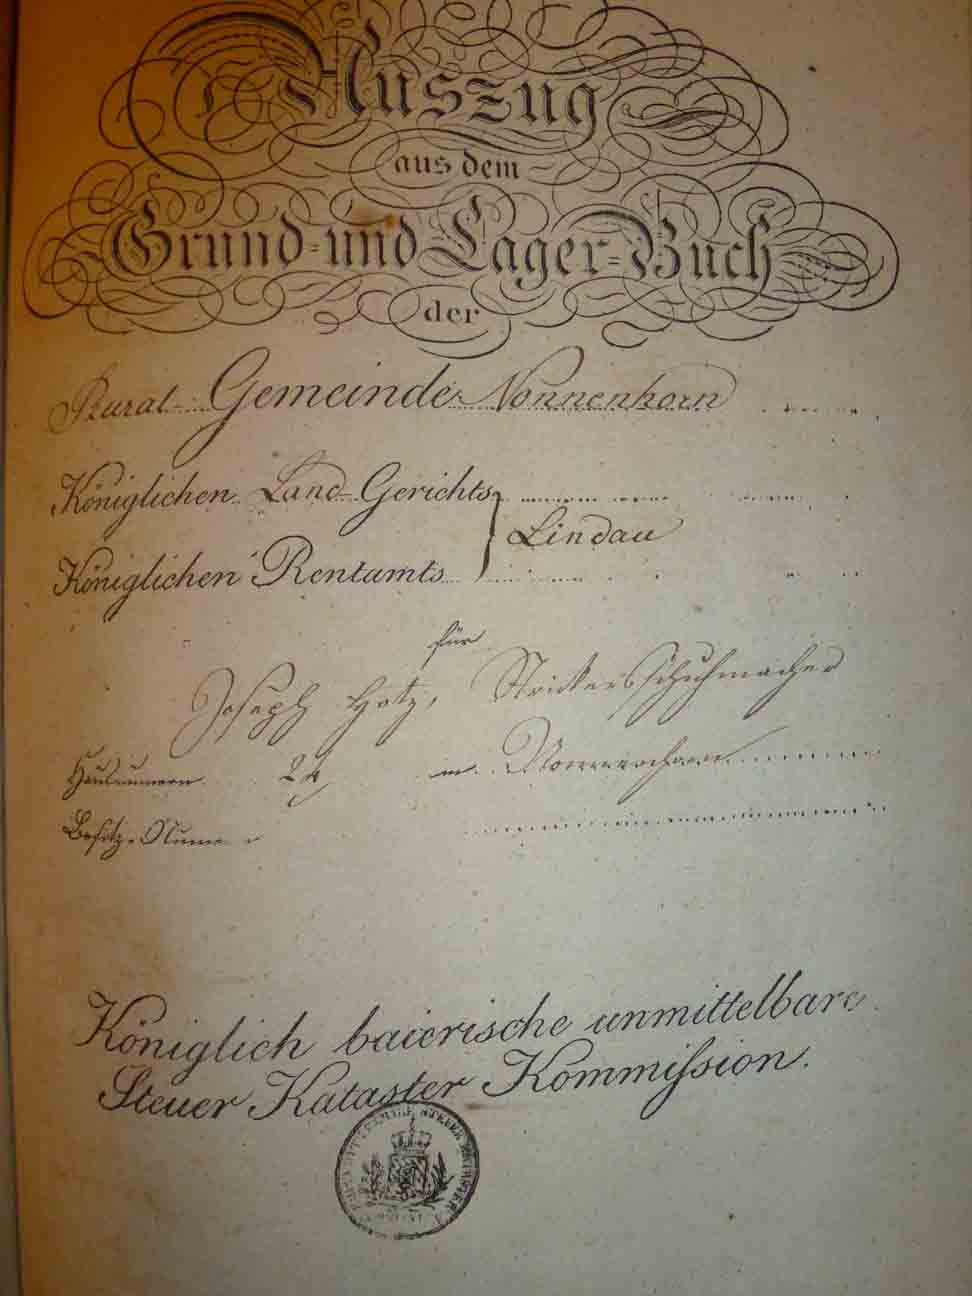 Auszug
aus dem
Grund- und Lager-Buch
der
Rural Gemeinde Nonnenhorn
Königlichen Land-Gerichts
Lindau
Königlichen Rentamts
für
Joseph Hotz, Strickerschuhmacher
Hausnumern 24 in Nonnenhorn
Besitz-Numer
Königlich baierische unmittelbare
Steuer Kataster Kommission.
STEUER KATASTER